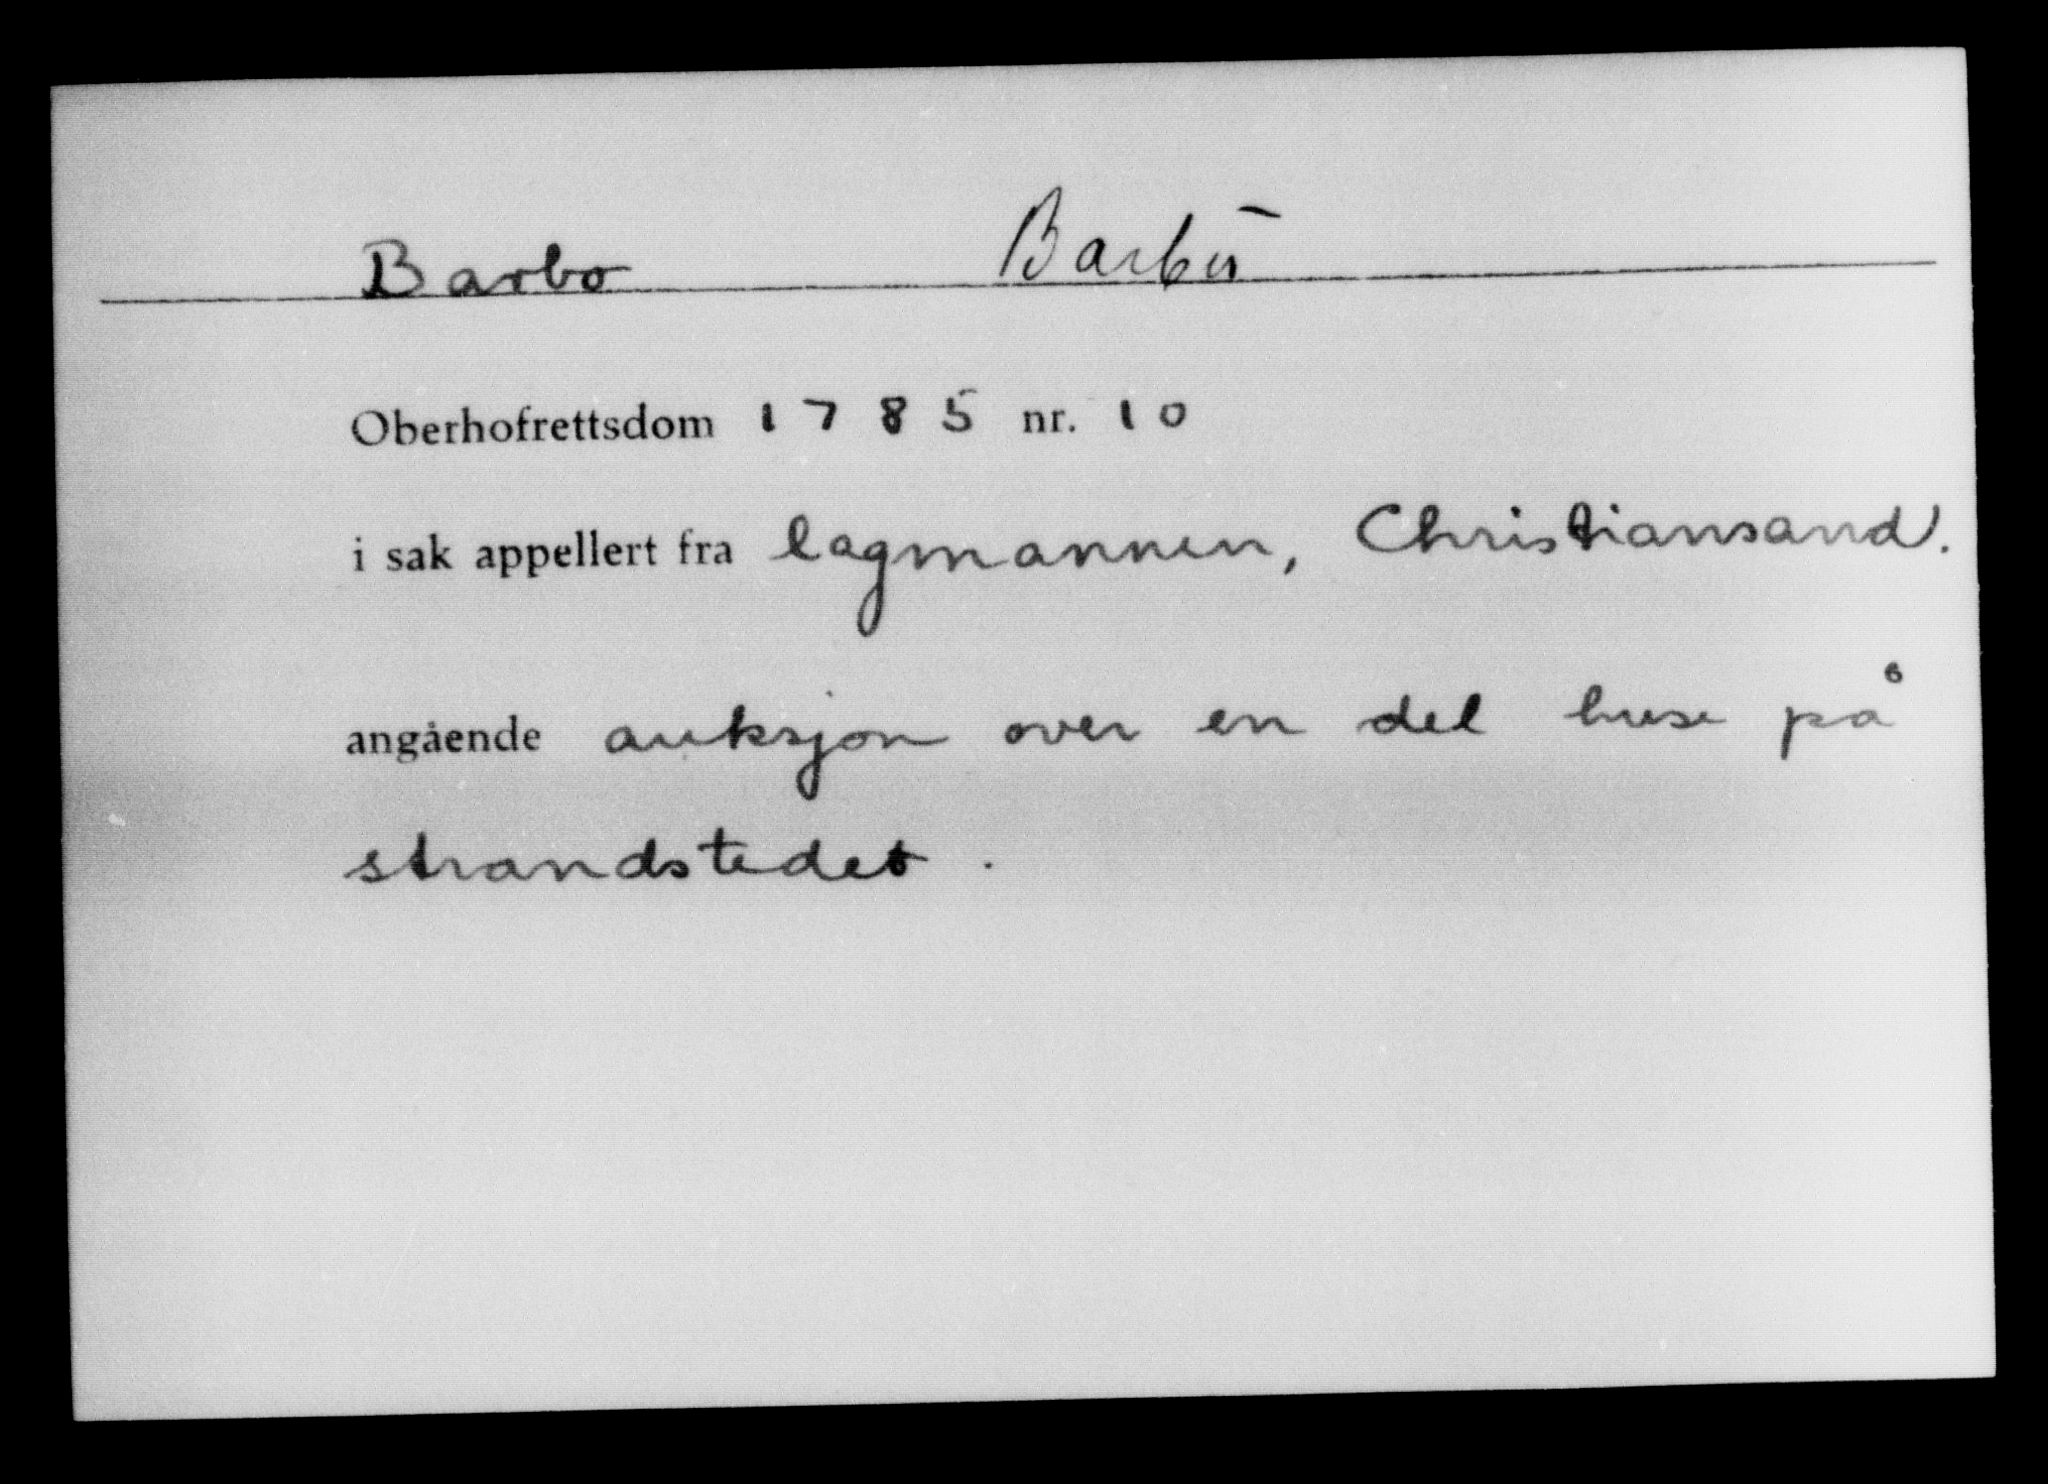 Barbo Barbu
Oberhofrettsdom 1785 nr. 10
i sak appellert fra lagmannen, Christiansand.
angående auksjon over en del huse på
strandstedet.